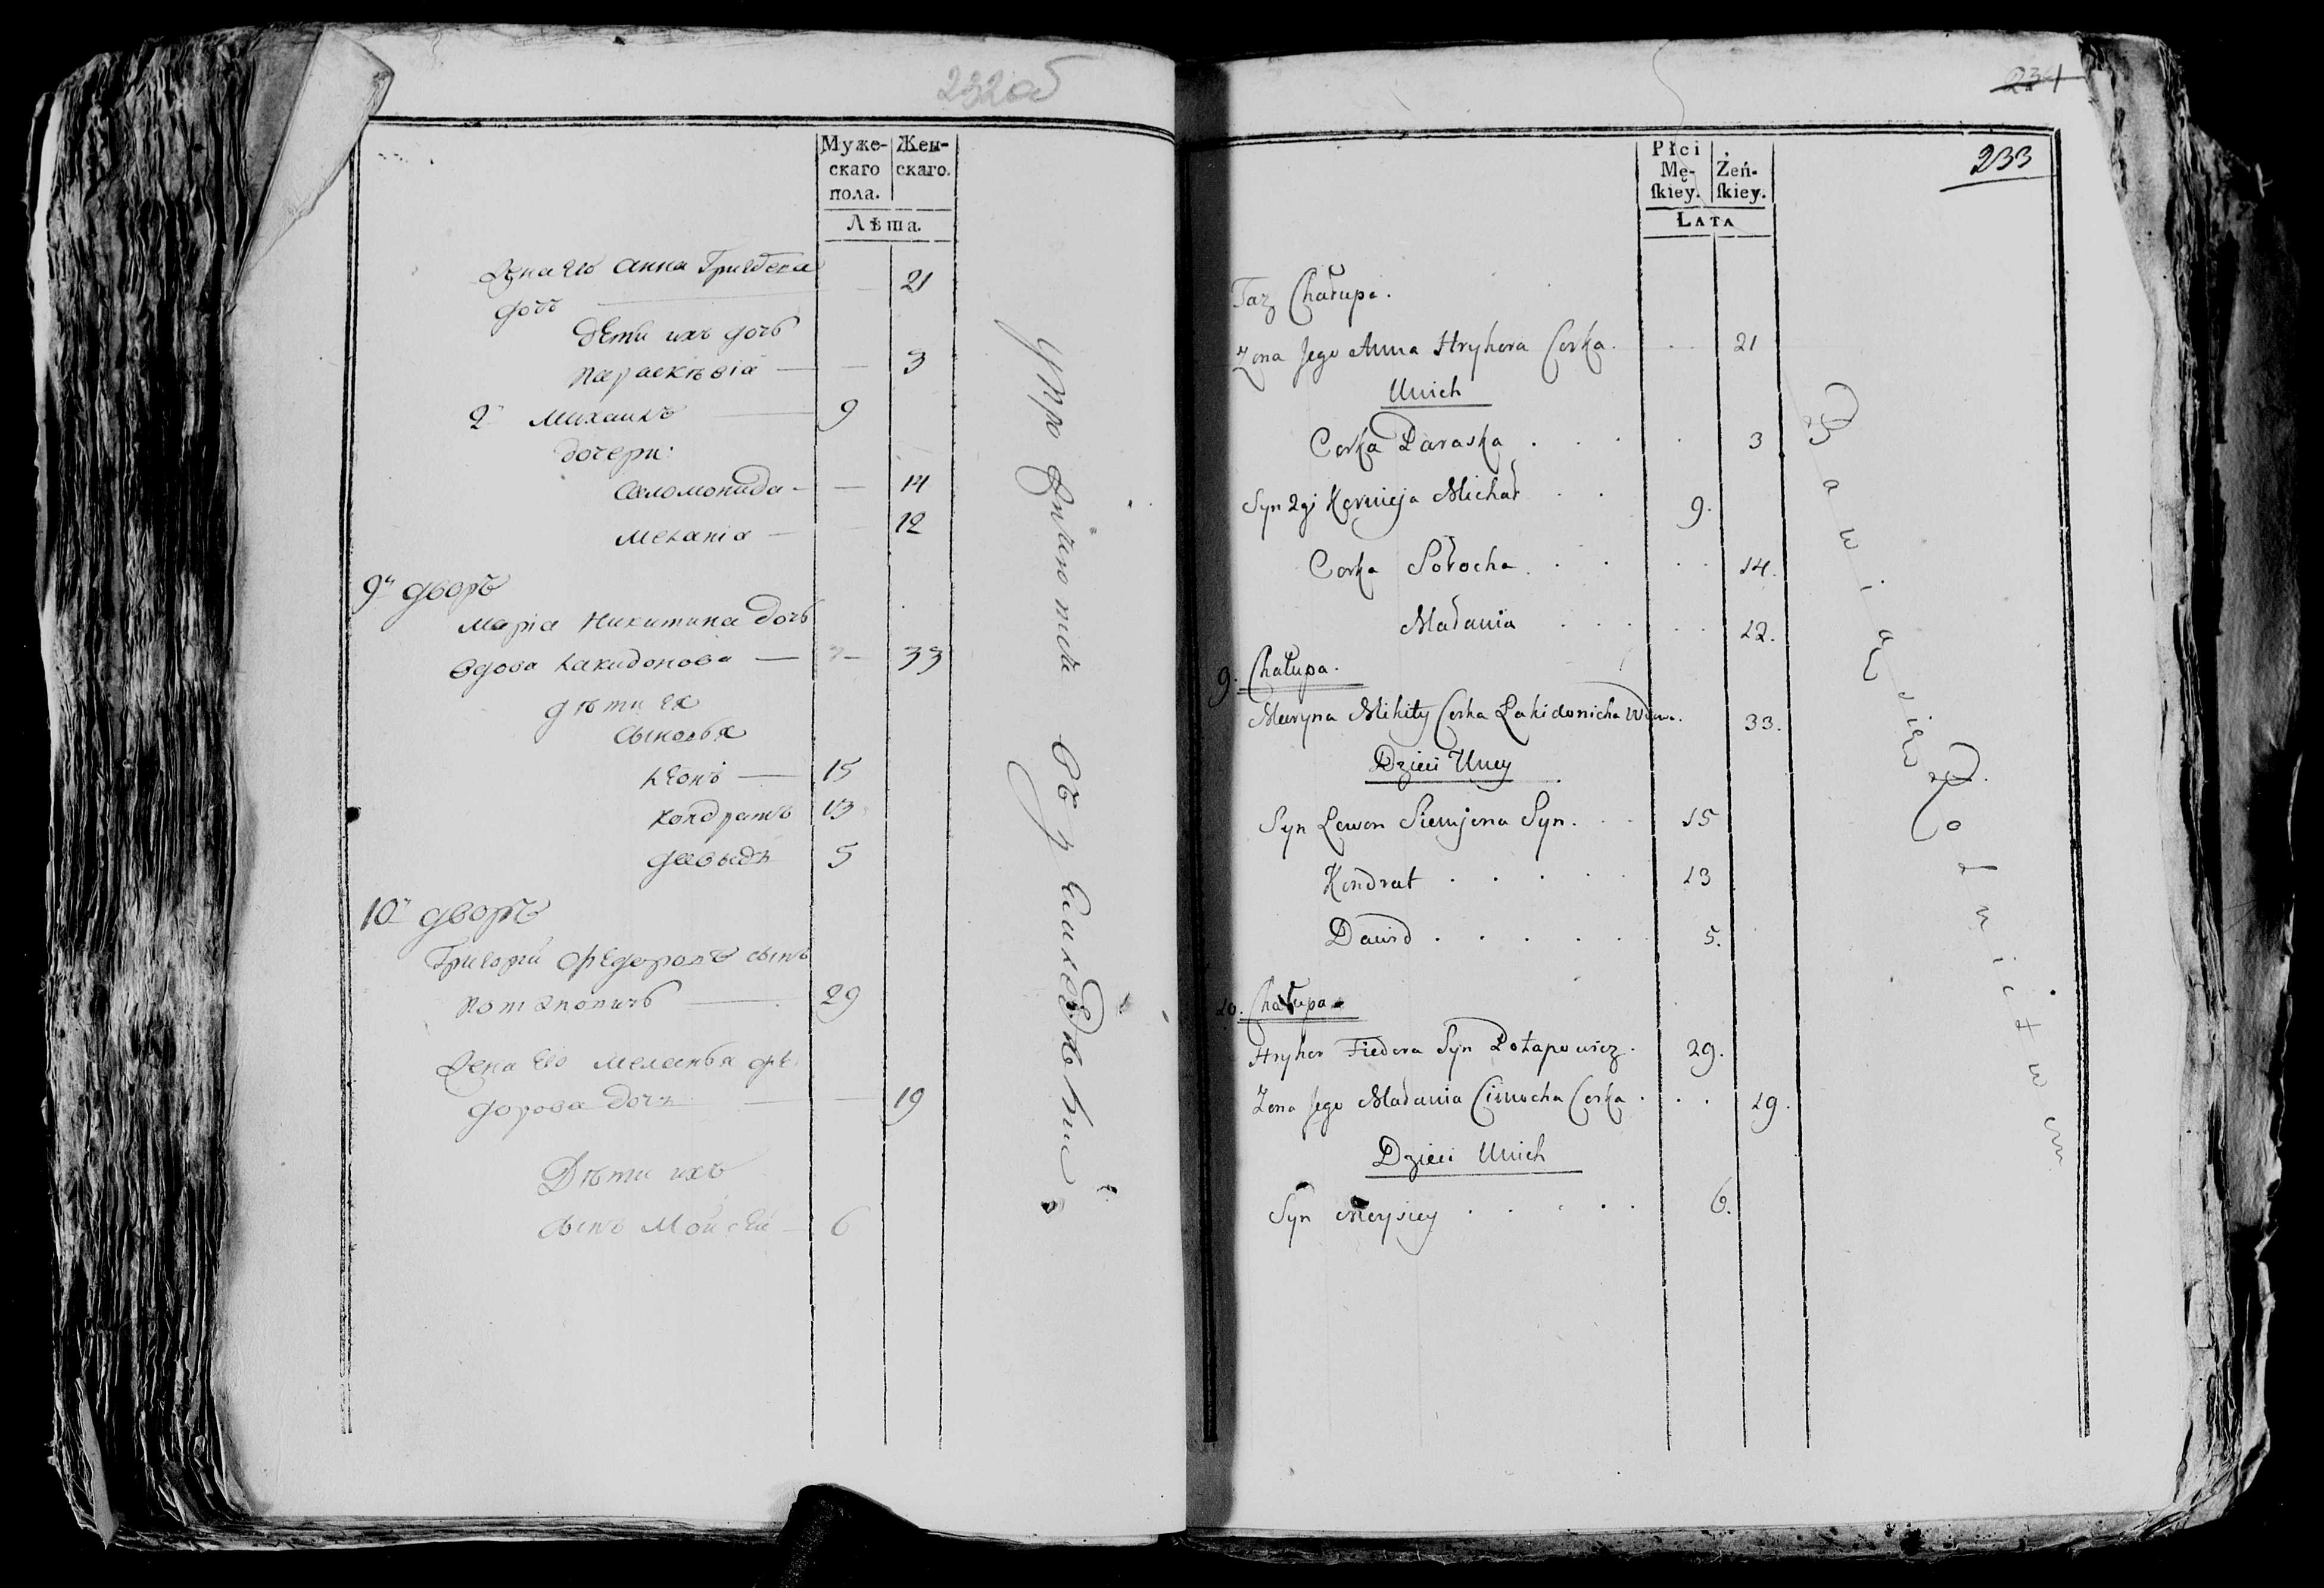 232об
Муже- Жен-
скаго скаго.
пола.
Лѣта.
Жена его Анна Григорева 21
дочь
Дети ихъ дочь
Параскѣвіа — — 3
2й Михаилъ — 9
дочери:
Соломонида — — 14
Меланіа — 12
9й дворъ
Маріа Никитина дочь
вдова Лакидонова — — 33
дѣти ея
сыновья
Леонъ — 15
Кондратъ 13
Давыдъ 5
10й дворъ
Григорій Федоровъ сынъ
Потаповичъ — 29
Жена его Меланья Фе-
дорова дочь — — 19
Дѣти ихъ
сынъ Мойсей — 6
упражняются въ
231
233
Płci
Mę- Żeń-
ſkiey. ſkiey.
LATA
Taż Chałupa.
Zona Jego Anna Hryhora Corka. 21
Unich
Corka Paraska 3
Syn 2gi Kornieja Michał 9.
Corka Sołocha 14.
Małania 12.
9. Chałupa.
Maryna Mikity Corka Lakidonicha Wdowa. 33.
Dzieci Uniey
Syn Lewon Siemjona Syn. 15
Kondrat 13
Dawid 5.
10. Chałupa
Hryhor Fiedora Syn Potapowicz. 29.
Zona Jego Maładnia Cimocha Corka 19.
Dzieci Unich
Syn Moysiey 6.
Bawią się Rolnictwem